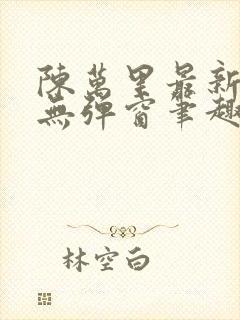 陳萬里最新
無彈窗筆趣
林空白